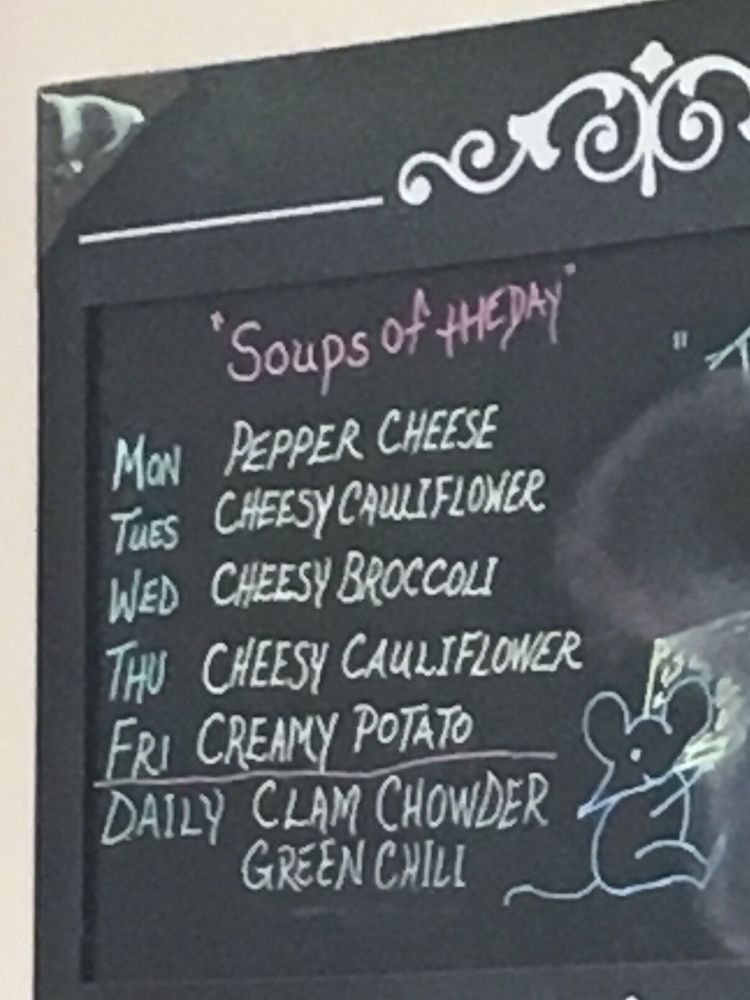 "Soups of THE DAY"
MON PEPPER CHEESE
TUES CHEESY CAULIFLOWER
WED CHEESY BROCCOLI
THU CHEESY CAULIFLOWER
FRI CREAMY POTATO
DAILY CLAM CHOWDER
GREEN CHILI